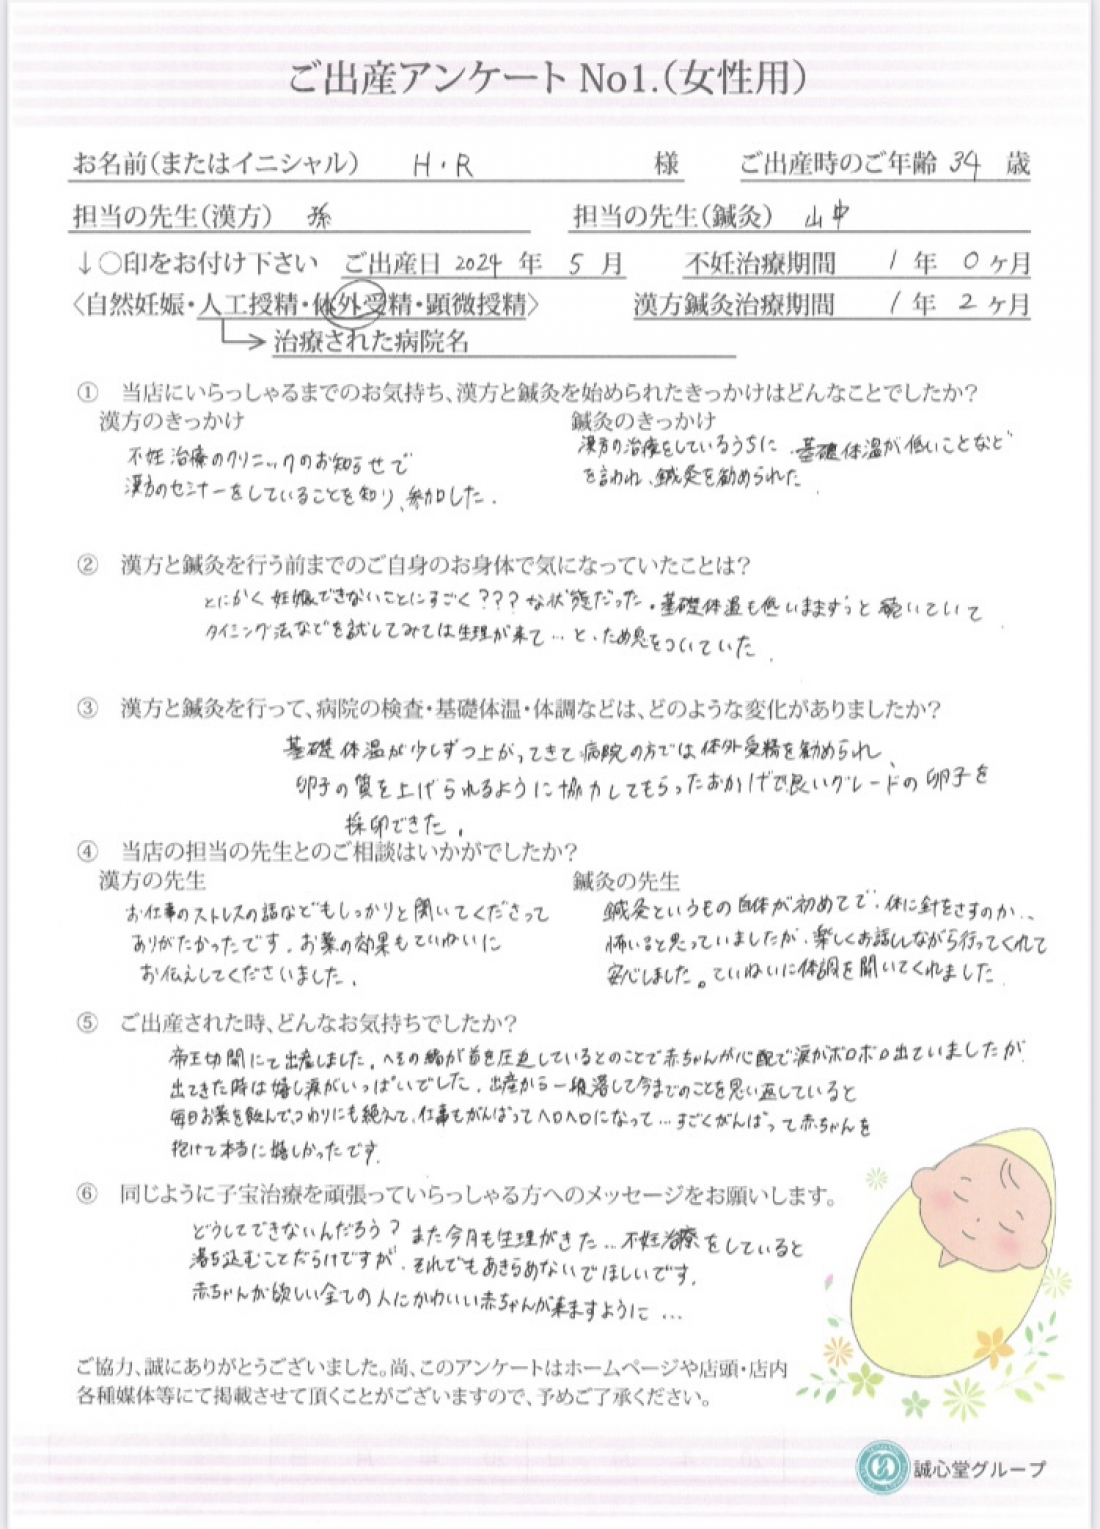 ご出産アンケート No1.(女性用)
お名前(またはイニシャル) H・R 様 ご出産時のご年齢 34 歳
担当の先生(漢方) 孫 担当の先生(鍼灸) 山中
↓○印をお付け下さい ご出産日 2024 年 5 月 不妊治療期間 1 年 0 ヶ月
〈自然妊娠・人工授精・体外受精・顕微授精〉 漢方鍼灸治療期間 1 年 2 ヶ月
治療された病院名
① 当店にいらっしゃるまでのお気持ち、漢方と鍼灸を始められたきっかけはどんなことでしたか?
漢方のきっかけ
不妊治療のクリニックのお知らせで
漢方のセミナーをしていることを知り、参加した.
鍼灸のきっかけ
漢方の治療をしているうちに 基礎体温が低いことなど
を言われ、鍼灸を勧められた.
② 漢方と鍼灸を行う前までのご自身のお身体で気になっていたことは?
とにかく妊娠できないことにすごく???な状態だった. 基礎体温も低いままずっと続いていて
タイミング法などを試してみては生理が来て…と、ため息をついていた.
③ 漢方と鍼灸を行って、病院の検査・基礎体温・体調などは、どのような変化がありましたか?
基礎体温が少しずつ上がってきて病院の方では体外受精を勧められ、
卵子の質を上げられるように協力してもらったおかげで良いグレードの卵子を
採卵できた.
④ 当店の担当の先生とのご相談はいかがでしたか?
漢方の先生
お仕事のストレスの話などもしっかりと聞いてくださって
ありがたかったです. お薬の効果もていねいに
お伝えしてくださいました.
鍼灸の先生
鍼灸というもの自体が初めてで、体に針をさすのか…
怖いなと思っていましたが、楽しくお話ししながら行ってくれて
安心しました。ていねいに体調を聞いてくれました
⑤ ご出産された時、どんなお気持ちでしたか?
帝王切開にて出産しました. へその緒が首を圧迫しているとのことで赤ちゃんが心配で涙がボロボロ出ていましたが
出てきた時は嬉し涙がいっぱいでした. 出産から一段落して今までのことを思い返していると
毎日お薬を飲んで、つわりにも絶えて、仕事もがんばってヘロヘロになって…すごくがんばって赤ちゃんを
抱けて本当に嬉しかったです.
⑥ 同じように子宝治療を頑張っていらっしゃる方へのメッセージをお願いします。
どうしてできないんだろう? また今月も生理がきた… 不妊治療をしていると
落ち込むことだらけですが、それでもあきらめないでほしいです.
赤ちゃんが欲しい全ての人にかわいい赤ちゃんが来ますように…
ご協力、誠にありがとうございました。尚、このアンケートはホームページや店頭・店内
各種媒体等にて掲載させて頂くことがございますので、予めご了承ください。
誠心堂グループ